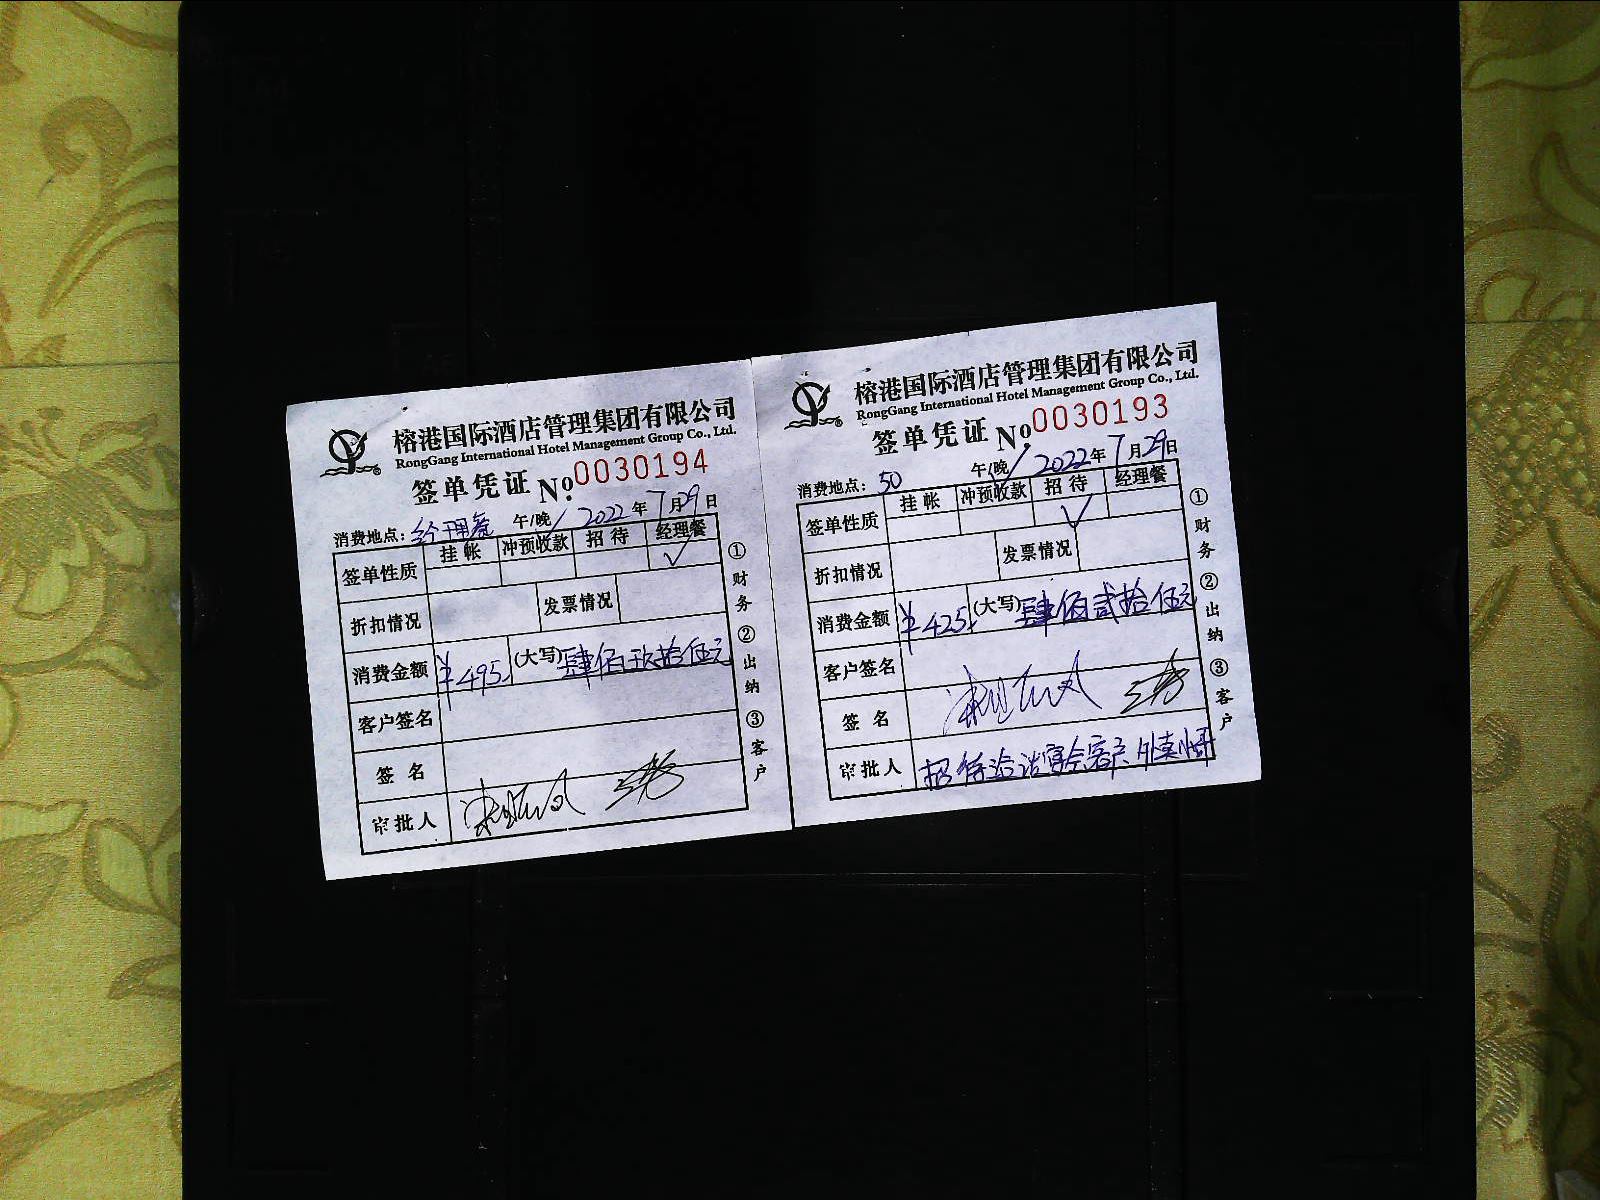 榕港国际酒店管理集团有限公司
RongGang International Hotel Management Group Co., Ltd.
签单凭证 No. 0030194
消费地点: 经理餐 午/晚 2022年7月29日
签单性质 挂帐 冲预收款 招待 经理餐
✓
折扣情况 发票情况
消费金额 ¥495 (大写) 肆佰玖拾伍元
客户签名
签名
审批人
①财务 ②出纳 ③客户
榕港国际酒店管理集团有限公司
RongGang International Hotel Management Group Co., Ltd.
签单凭证 No. 0030193
消费地点: 50 午/晚 2022年7月29日
签单性质 挂帐 冲预收款 招待 经理餐
✓
折扣情况 发票情况
消费金额 ¥425 (大写) 肆佰贰拾伍元
客户签名
签名
审批人 招待洽谈宴会客户
①财务 ②出纳 ③客户